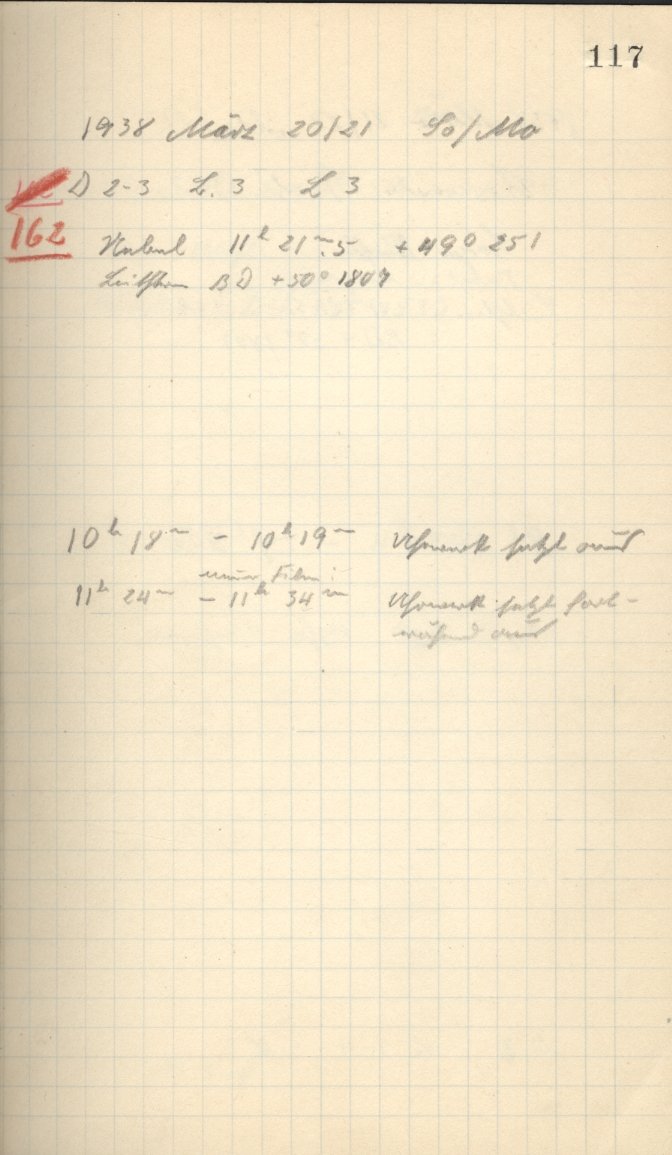 117
1938 März 20/21 So/Mo
D 2-3 L. 3 L 3
162
Nebel 11h 21m.5 +49° 25'
Leitstern BD +50° 1807
10h 18m - 10h 19m Uhrwerk setzt aus
neuer Film:
11h 24m - 11h 34m Uhrwerk setzt fort-
während aus